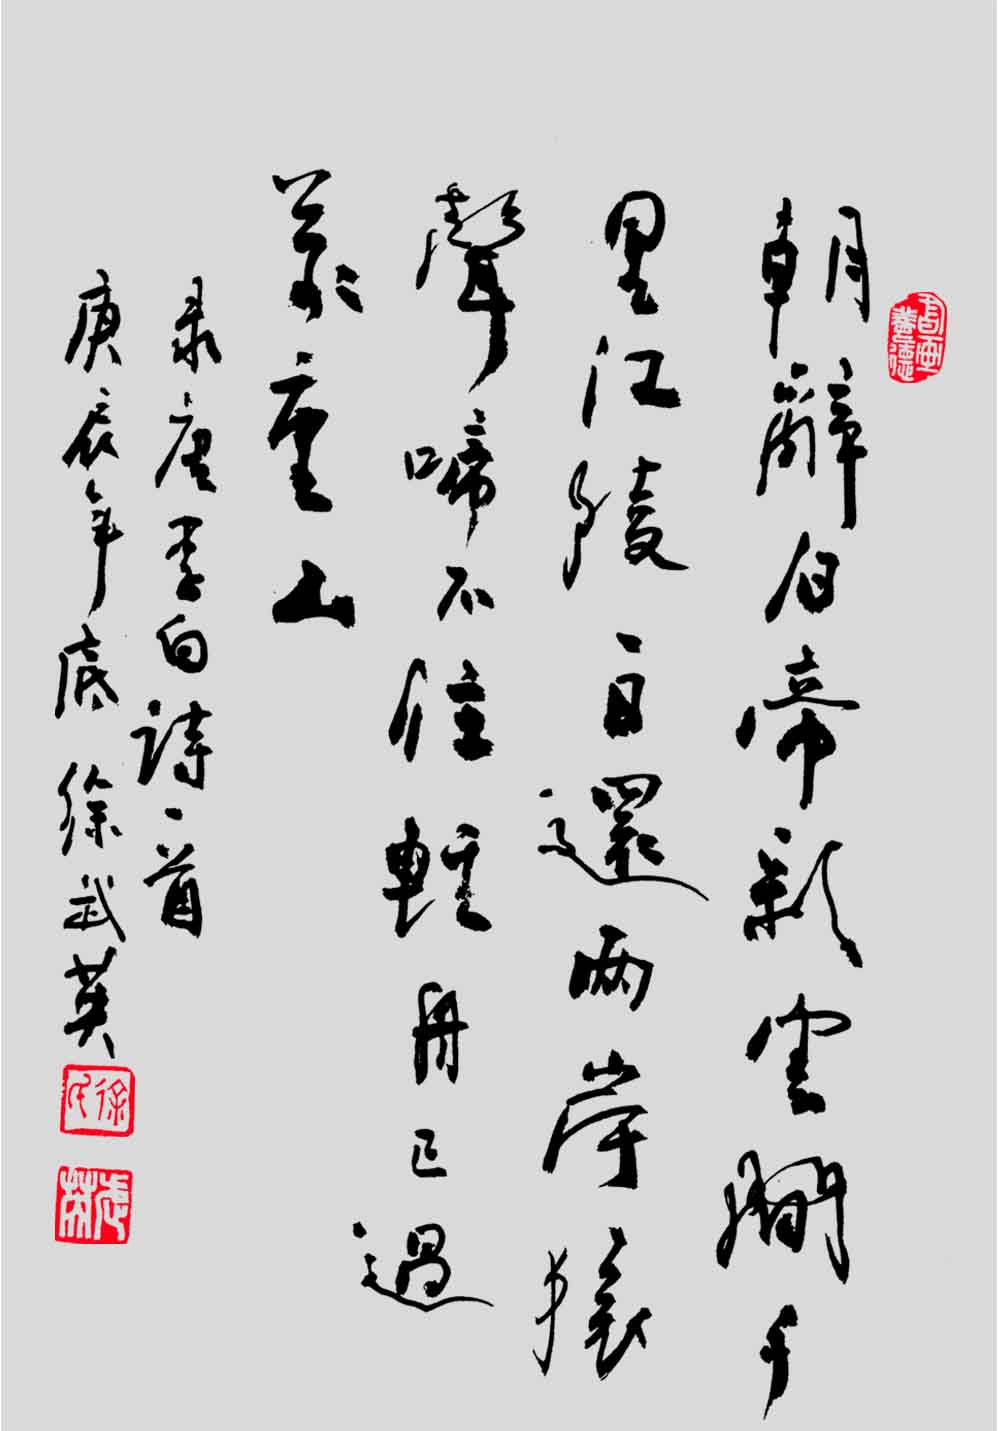 書画養德
朝辭白帝彩雲間千
里江陵一日還兩岸猿
聲啼不住輕舟已過
萬重山
录唐李白詩一首
庚辰年底徐武英
徐氏
武英